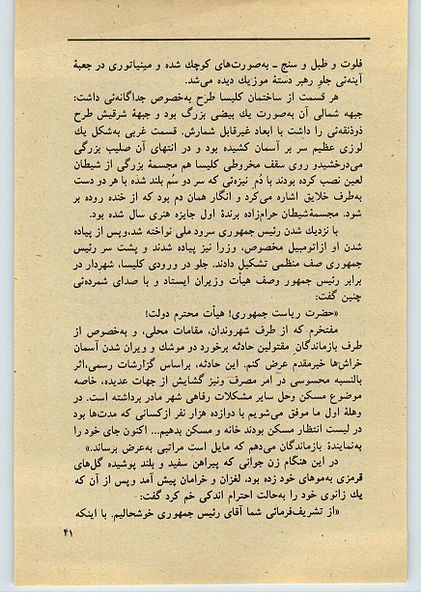 فلوت و طبل و سنج ـ به‌صورت‌های کوچک شده و مینیاتوری در جعبهٔ
آینه‌ئی جلو رهبر دستهٔ موزیک دیده می‌شد.
هر قسمت از ساختمان کلیسا طرح به‌خصوص جداگانه‌ئی داشت:
جبهه شمالی آن به‌صورت یك بیضی بزرگ بود و جبههٔ شرقیش طرح
ذوذنقه‌ئی را داشت با ابعاد غیرقابل شمارش. قسمت غربی به‌شکل یك
لوزی عظیم سر بر آسمان کشیده بود و در انتهای آن صلیب بزرگی
می‌درخشیدو روی سقف مخروطی کلیسا هم مجسمهٔ بزرگی از شیطان
لعین نصب کرده بودند با دُم نیزه‌ئی که سر دو سُم بلند شده با هر دو دست
به‌طرف خلایق اشاره می‌کرد و انگار همان دم بود که از خنده روده بر
شود. مجسمهٔ‌شیطان حرام‌زاده برندهٔ اول جایزه هنری سال شده بود.
با نزدیك شدن رئیس جمهوری سرود ملی نواخته شد،وپس از پیاده
شدن او ازاتومبیل مخصوص، وزرا نیز پیاده شدند و پشت سر رئیس
جمهوری صف منظمی تشکیل دادند. جلو در ورودی کلیسا، شهردار در
برابر رئیس جمهور وصف هیأت وزیران ایستاد و با صدای شمرده‌ئی
چنین گفت:
«حضرت ریاست جمهوری! هیأت محترم دولت!
مفتخرم که از طرف شهروندان، مقامات محلی، و به‌خصوص از
طرف بازماندگان مقتولین حادثه برخورد دو موشك و ویران شدن آسمان
خراش‌ها خیرمقدم عرض کنم. این حادثه، براساس گزارشات رسمی،اثر
بالنسبه محسوسی در امر مصرف ونیز گشایش از جهات عدیده، خاصه
موضوع مسکن وحل سایر مشکلات رفاهی شهر مادر برداشته است. در
وهلهٔ اول ما موفق می‌شویم با دوازده هزار نفر ازکسانی که مدت‌ها بود
در لیست انتظار مسکن بودند خانه و مسکن بدهیم... اکنون جای خود را
به‌نمایندهٔ بازماندگان می‌دهم که مایل است مراتبی به‌عرض برساند.»
در این هنگام زن جوانی که پیراهن سفید و بلند پوشیده گل‌های
قرمزی به‌موهای خود زده بود، لغزان و خرامان پیش آمد وپس از آن که
یك زانوی خود را به‌حالت احترام اندکی خم کرد گفت:
«از تشریف‌فرمائی شما آقای رئیس جمهوری خوشحالیم. با اینکه
۴۱